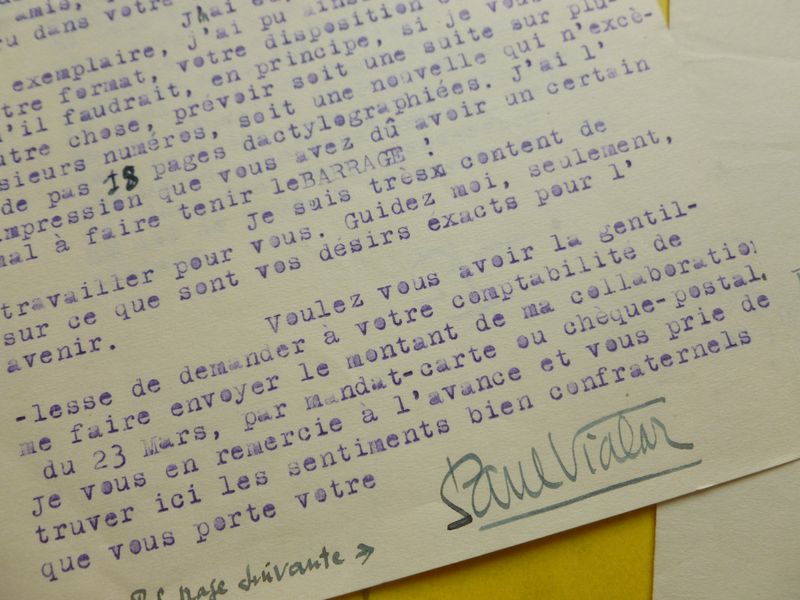 amis,
dans votre J'ai
exemplaire, j'ai pu ains
tre format, votre disposition
'il faudrait, en principe, si je vou
utre chose, prévoir soit une suite sur plu-
sieurs numéros, soit une nouvelle qui n'excè-
de pas 18 pages dactylographiées. J'ai l'
impression que vous avez dû avoir un certain
mal à faire tenir leBARRAGE !
Je suis trèsx content de
travailler pour vous. Guidez moi, seulement,
sur ce que sont vos désirs éxacts pour l'
avenir.
Voulez vous avoir la gentil-
-lesse de demander à votre comptabilité de
me faire envoyer le montant de ma collaboration
du 23 Mars, par mandat-carte ou chèque-postal.
Je vous en remercie à l'avance et vous prie de
truver ici les sentiments bien confraternels
que vous porte votre
Paul Vialar
P.S. page suivante →